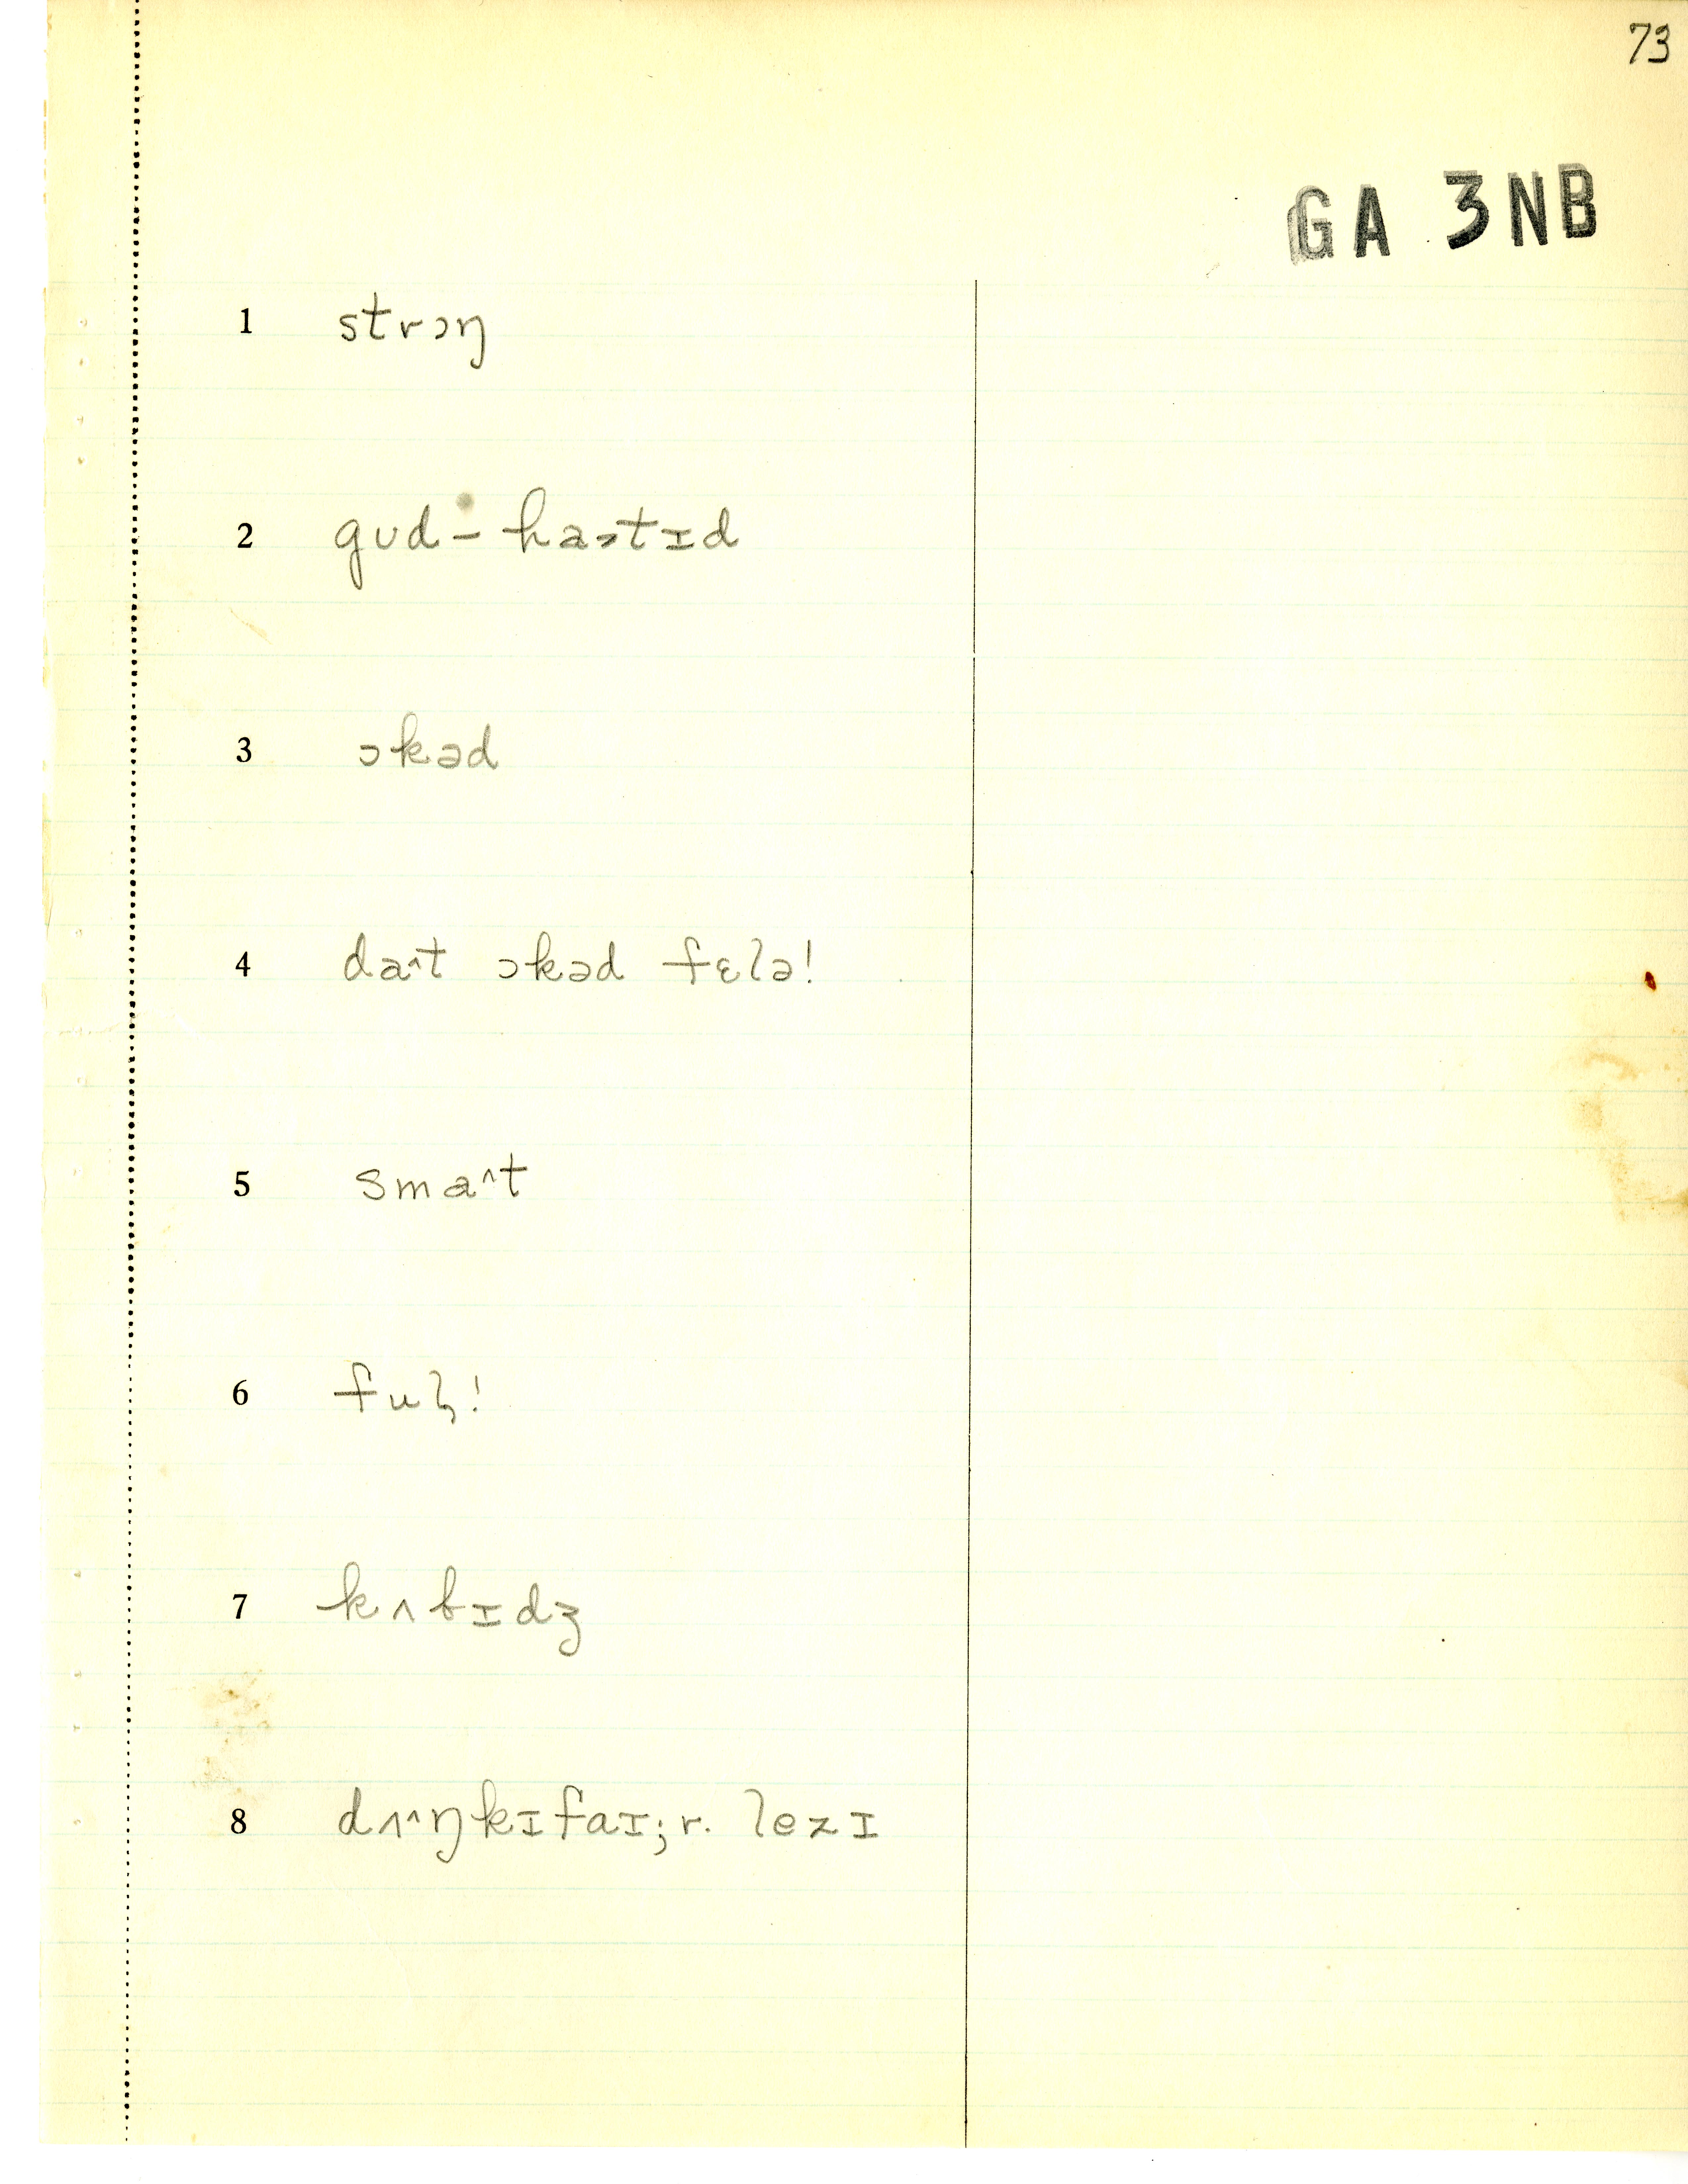 73
GA 3NB
1 strɔŋ
2 gud - ha˃tɪd
3 ɔkəd
4 da^t ɔkəd fɛlə!
5 sma^t
6 ful̡!
7 kʌbɪdʒ
8 dʌ^ŋkɪfaɪ; r. lezɪ